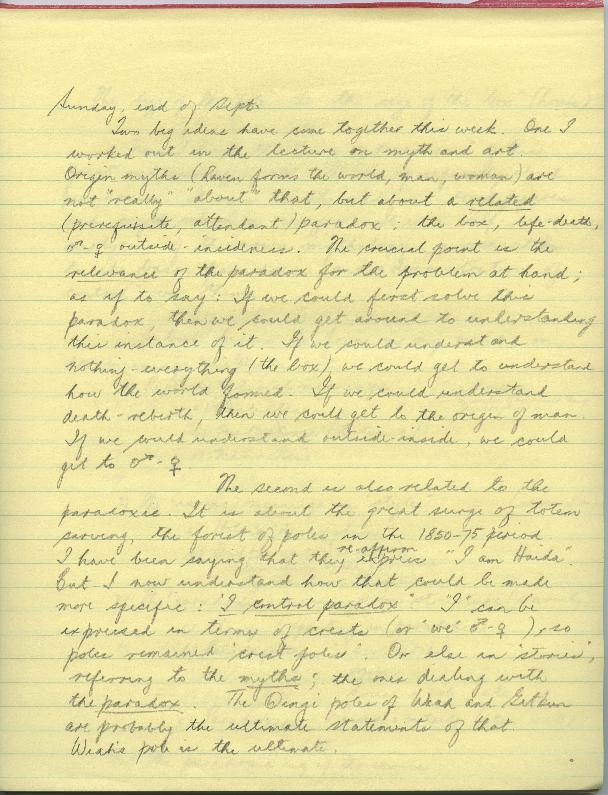 Sunday, end of Sept.
Two big ideas have come together this week. One I
worked out in the lecture on myth and art.
Origin myths (Raven forms the world, man, woman) are
not "really" "about" that, but about a related
(prerequisite, attendant) paradox: the box, life-death,
♂-♀ outside-insideness. The crucial point is the
relevance of the paradox for the problem at hand;
as if to say: If we could first solve this
paradox, then we could get around to understanding
this instance of it. If we could understand
nothing-everything (the box), we could get to understand
how the world formed. If we could understand
death-rebirth, then we could get to the origin of man.
If we could understand outside-inside, we could
get to ♂-♀.
The second is also related to the
paradoxic. It is about the great surge of totem
carving, the forest of poles in the 1850-75 period
I have been saying that they express re-affirm "I am Haida".
But I now understand how that could be made
more specific: "I control paradox" "I" can be
expressed in terms of crests (or 'we' ♂-♀), so
poles remained 'crest poles'. Or else in 'stories',
referring to the myths; the ones dealing with
the paradox. The poles of Weah and
are probably the ultimate statements of that.
Weah's pole is the ultimate.